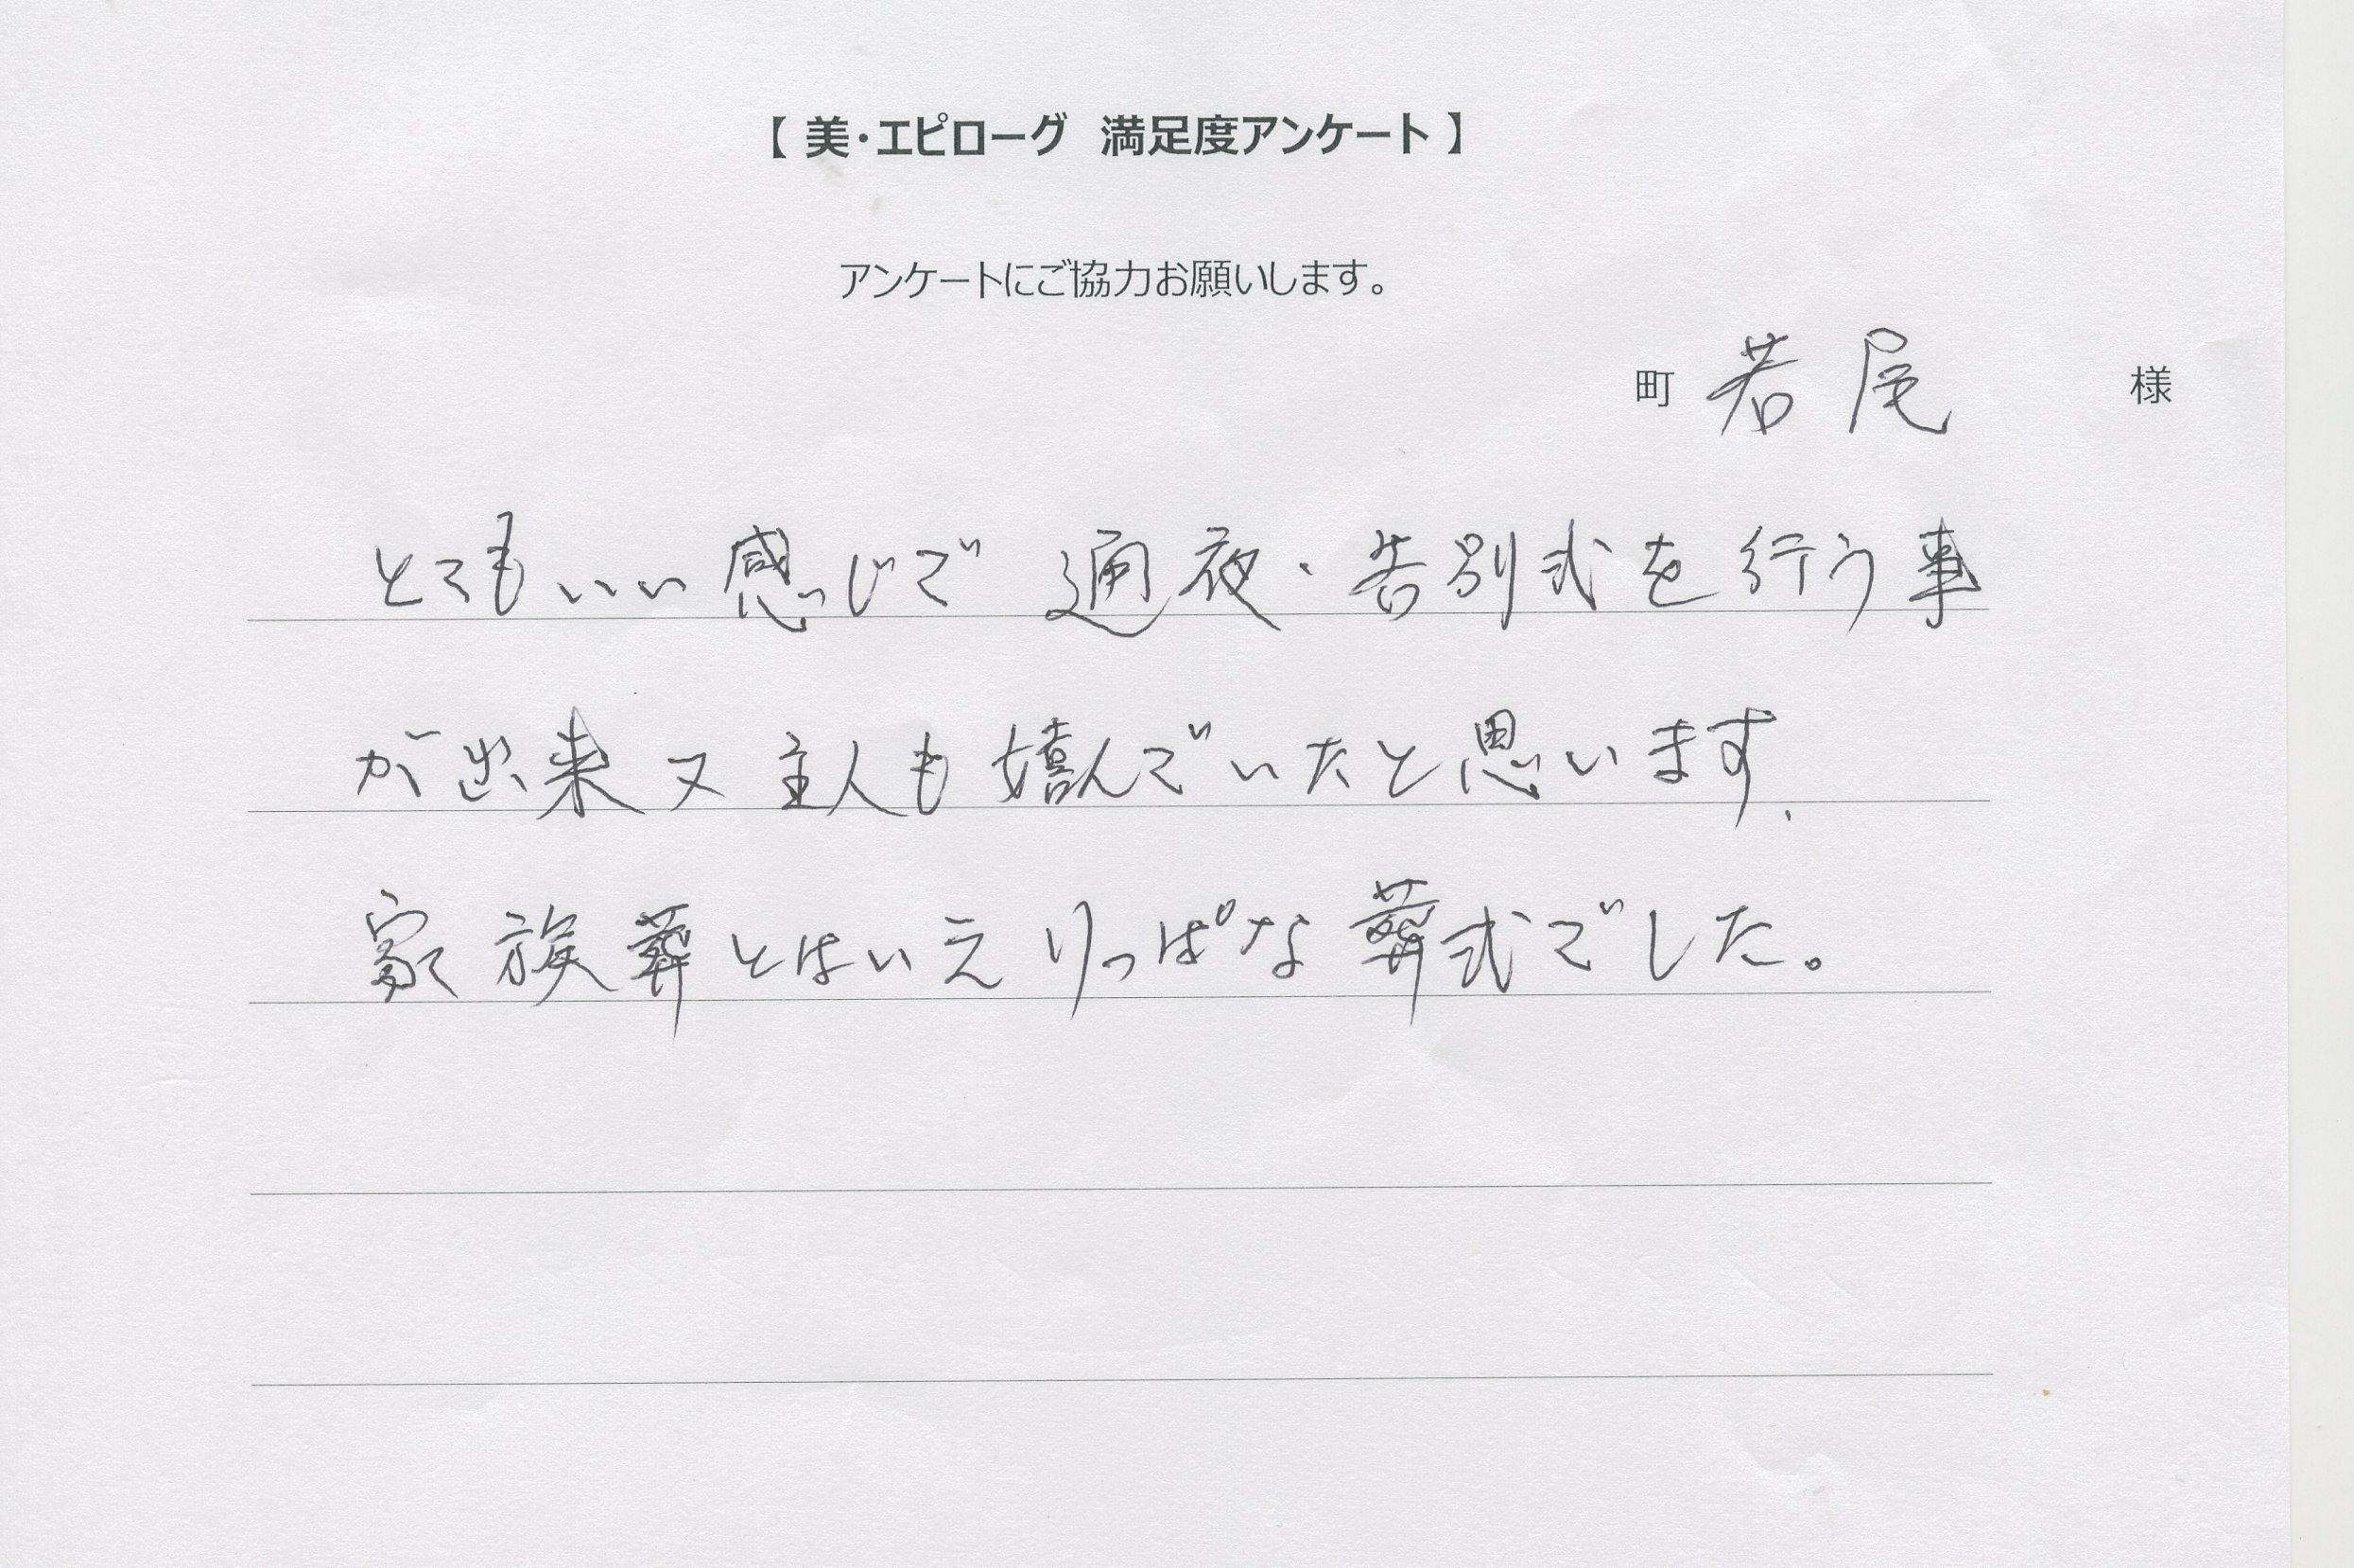 【 美・エピローグ 満足度アンケート 】
アンケートにご協力お願いします。
町 若尾 様
とてもいい感じで 通夜・告別式を行う事
が出来又主人も嬉んでいたと思います.
家族葬とはいえりっぱな葬式でした。